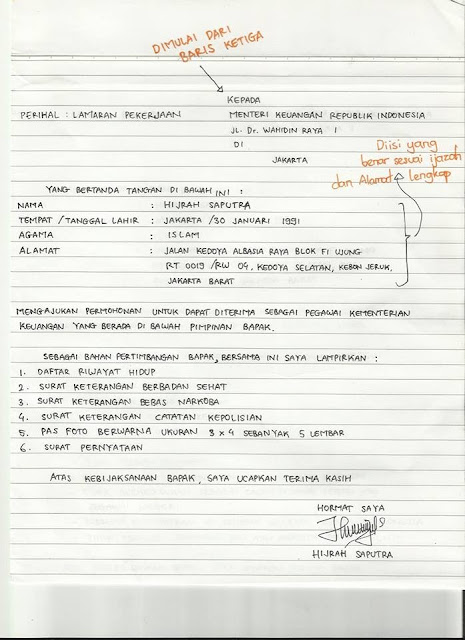 DIMULAI DARI
BARIS KETIGA
KEPADA
PERIHAL : LAMARAN PEKERJAAN MENTERI KEUANGAN REPUBLIK INDONESIA
JL. Dr. WAHIDIN RAYA 1
DI
JAKARTA
Diisi yang
benar sesuai ijazah
dan Alamat lengkap
YANG BERTANDA TANGAN DI BAWAH INI :
NAMA : HIJRAH SAPUTRA
TEMPAT /TANGGAL LAHIR : JAKARTA /30 JANUARI 1991
AGAMA : ISLAM
ALAMAT : JALAN KEDOYA ALBASIA RAYA BLOK F1 UJUNG
RT 0019 /RW 04, KEDOYA SELATAN, KEBON JERUK,
JAKARTA BARAT
MENGAJUKAN PERMOHONAN UNTUK DAPAT DITERIMA SEBAGAI PEGAWAI KEMENTERIAN
KEUANGAN YANG BERADA DI BAWAH PIMPINAN BAPAK.
SEBAGAI BAHAN PERTIMBANGAN BAPAK, BERSAMA INI SAYA LAMPIRKAN :
1. DAFTAR RIWAYAT HIDUP
2. SURAT KETERANGAN BERBADAN SEHAT
3. SURAT KETERANGAN BEBAS NARKOBA
4. SURAT KETERANGAN CATATAN KEPOLISIAN
5. PAS FOTO BERWARNA UKURAN 3 x 4 SEBANYAK 5 LEMBAR
6. SURAT PERNYATAAN
ATAS KEBIJAKSANAAN BAPAK, SAYA UCAPKAN TERIMA KASIH
HORMAT SAYA
HIJRAH SAPUTRA